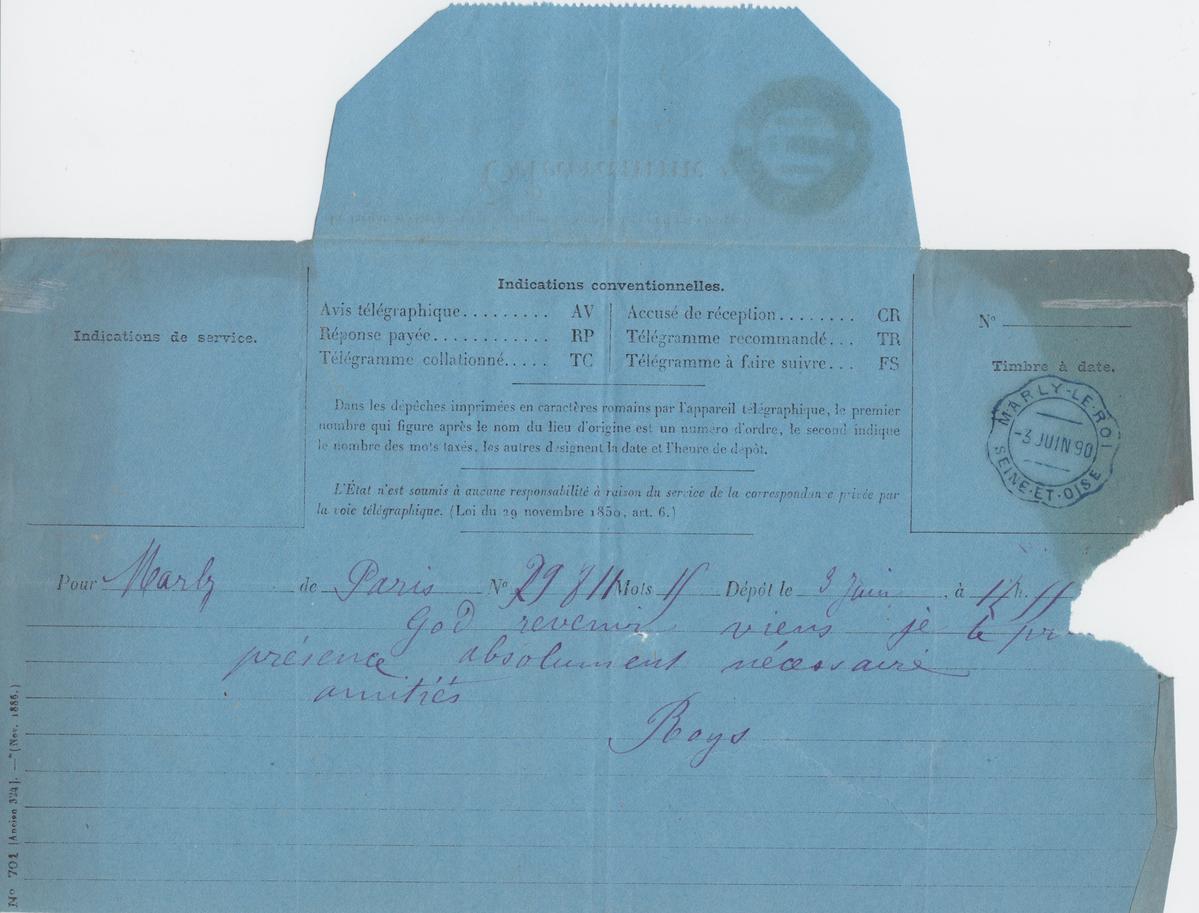 Indications conventionnelles.
Avis télégraphique......... AV
Réponse payée............ RP
Télégramme collationné..... TC
Accusé de réception........ CR
Télégramme recommandé... TR
Télégramme à faire suivre... FS
Indications de service.
N°
Timbre à date.
MARLY-LE-ROI
-3 JUIN 90
SEINE-ET-OISE
Dans les dépêches imprimées en caractères romains par l'appareil télégraphique, le premier
nombre qui figure après le nom du lieu d'origine est un numéro d'ordre, le second indique
le nombre des mots taxés, les autres désignent la date et l'heure de dépôt.
L'État n'est soumis à aucune responsabilité à raison du service de la correspondance privée par
la voie télégraphique. (Loi du 29 novembre 1850, art. 6.)
Pour Marly de Paris N° Mots Dépôt le 3 Juin, à h.
God revenir viens je te
présence absolument nécessaire
amitiés
Roys
N° 701 [Ancien 324]. — (Nov. 1886.)